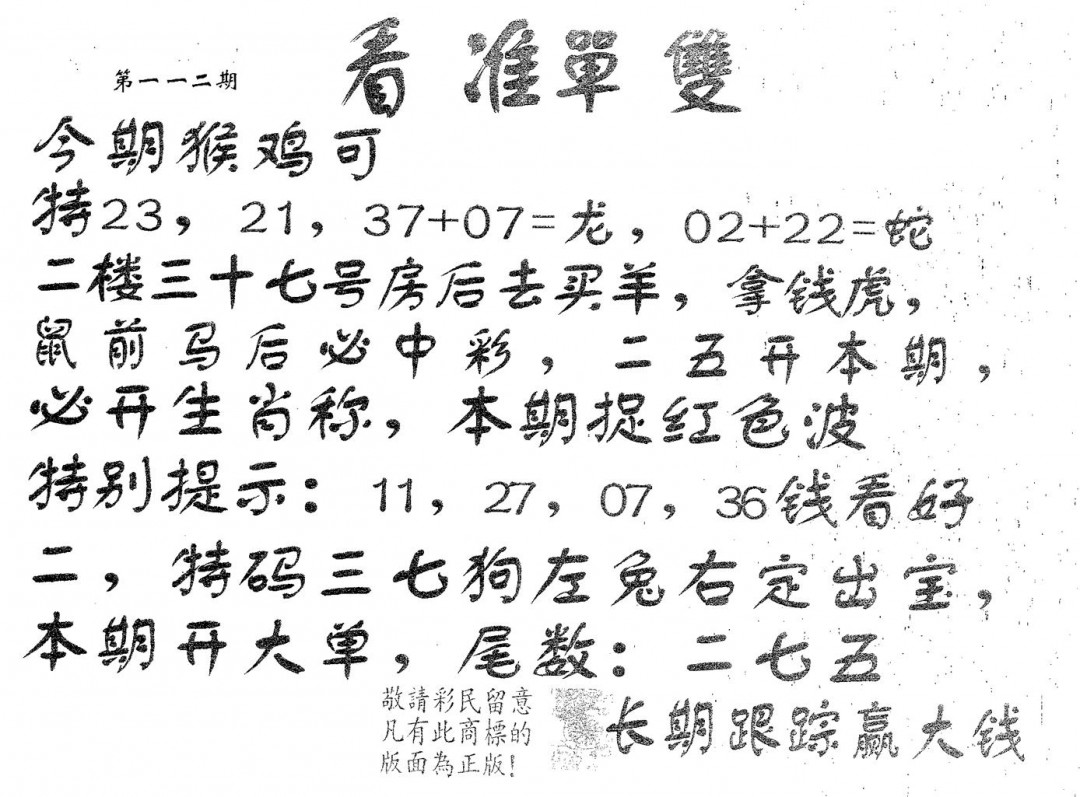 看准單雙
第一一二期
今期猴鸡可
特23，21，37+07=龙，02+22=蛇
二楼三十七号房后去买羊，拿钱虎，
鼠前马后必中彩，二五开本期，
必开生肖称，本期捉红色波
特别提示：11，27，07，36钱看好
二，特码三七狗左兔右定出宝，
本期开大单，尾数：二七五
敬請彩民留意
凡有此商標的
版面為正版！
长期跟踪赢大钱